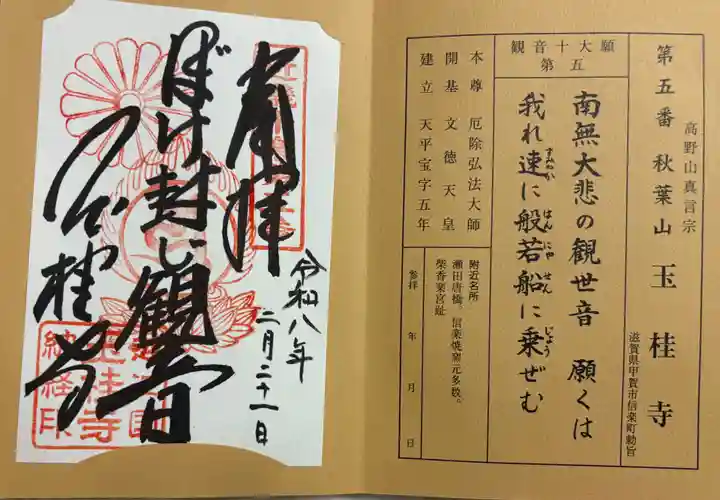 高野山真言宗
第五番 秋葉山 玉桂寺
滋賀県甲賀市信楽町勅旨
観音十大願
第五
南無大悲の観世音 願くは
我れ速に般若船に乗ぜむ
すみやか
はんにやせん
じょう
本尊 厄除弘法大師
開基 文徳天皇
建立 天平宝字五年
附近名所
瀬田唐橋。信楽焼窯元多数。
紫香楽宮趾
参拝 年 月 日
奉拝
令和八年
二月二十一日
ぼけ封じ観音
玉桂寺
玉桂寺
納経印